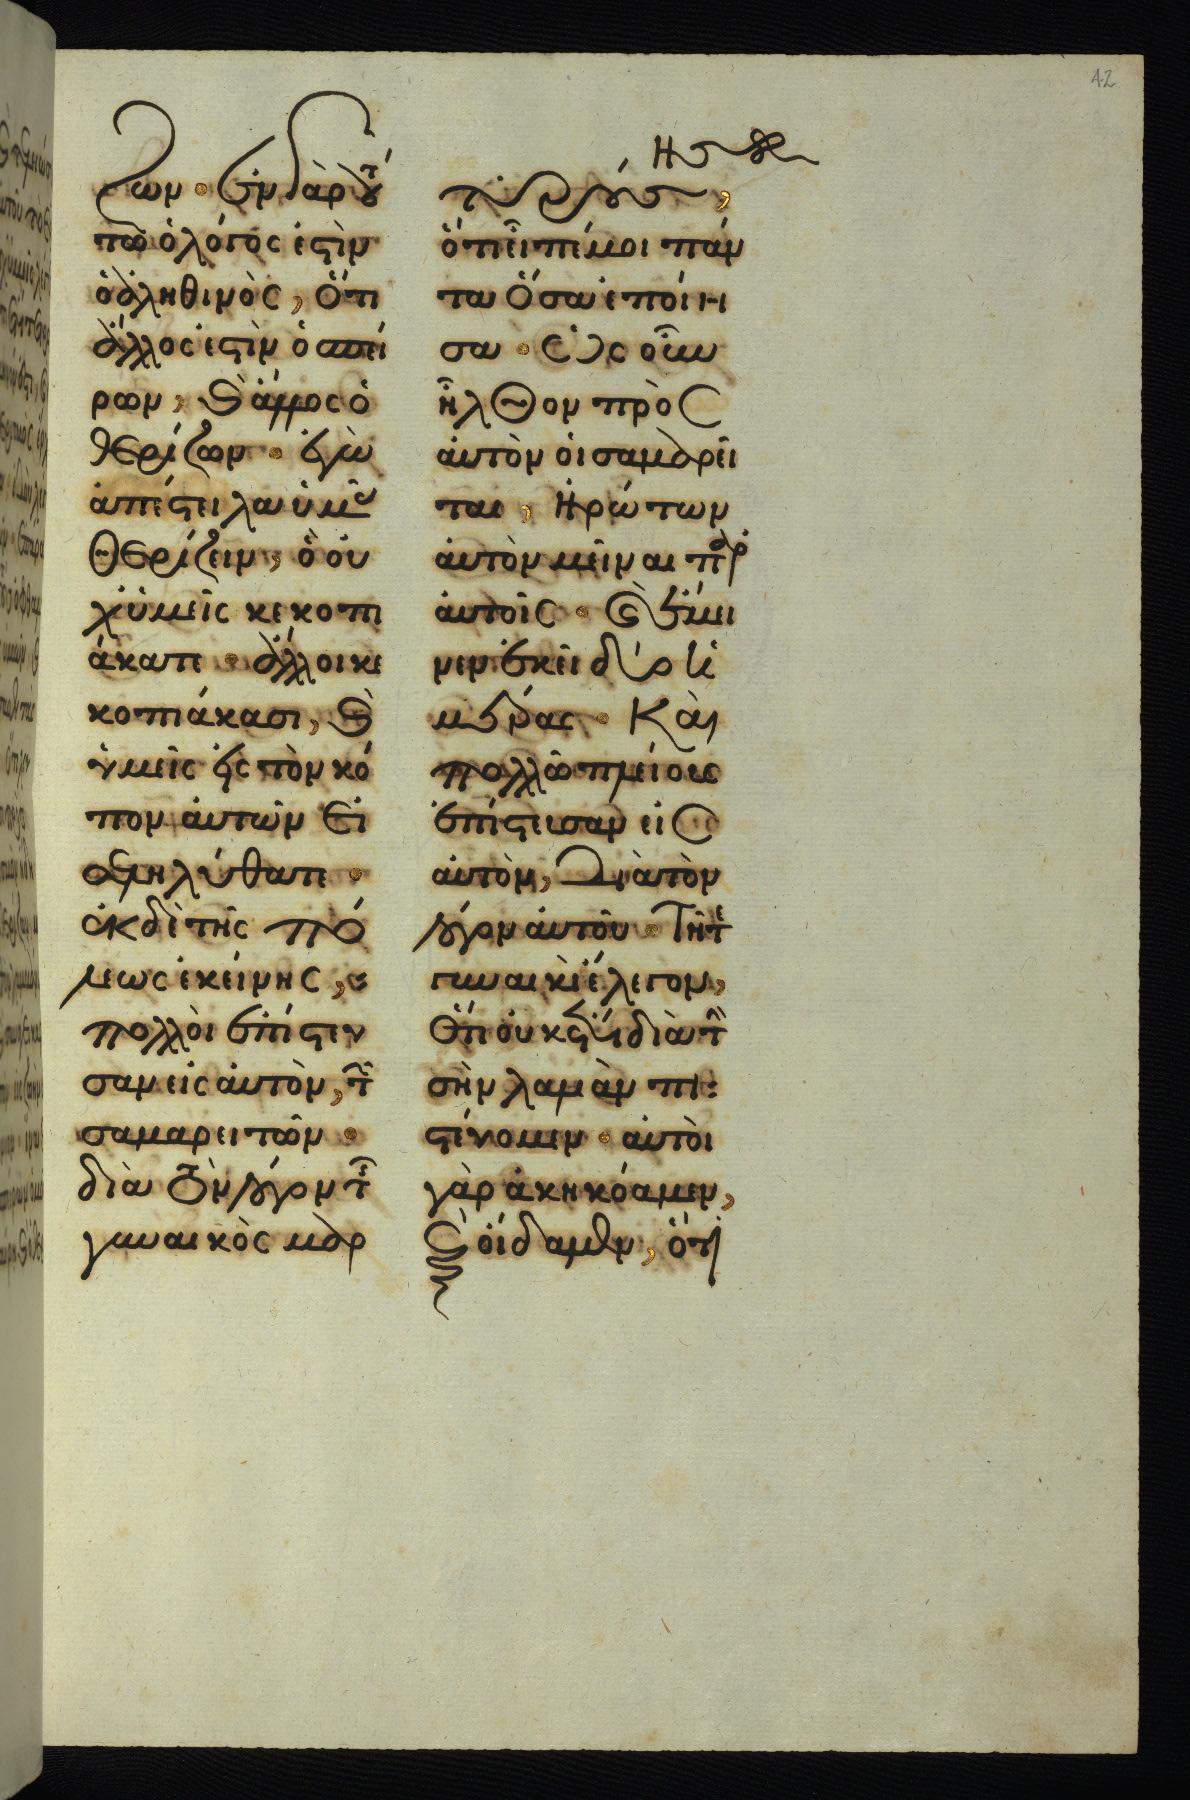 ζων · ἐν γὰρ τού
τω ὁ λόγος ἐστὶν
ὁ ἀληθινὸς, ὅτι
ἄλλος ἐστὶν ὁ σπεί
ρων, καὶ ἄλλος ὁ
θερίζων · ἐγὼ
ἀπέστειλα ὑμᾶς
θερίζειν, ὃ οὐ
χ ὑμεῖς κεκοπι
άκατε · ἄλλοι κε
κοπιάκασι, καὶ
ὑμεῖς εἰς τὸν κό
πον αὐτῶν εἰ
σεληλύθατε ·
ἐκ δὲ τῆς πό
λεως ἐκείνης,
πολλοὶ ἐπίστευ
σαν εἰς αὐτὸν, τῶν
σαμαρειτῶν ·
διὰ τὸν λόγον τῆς
γυναικὸς μαρ
τυρούσης,
ὅτι εἶπέ μοι πάν
τα ὅσα ἐποίη
σα · ὡς οὖν
ἦλθον πρὸς
αὐτὸν οἱ σαμαρεῖ
ται, ἠρώτων
αὐτὸν μεῖναι παρ
αὐτοῖς · καὶ ἔμει
νεν ἐκεῖ δύο ἡ
μέρας · Καὶ
πολλῶ πλείους
ἐπίστευσαν εἰς
αὐτὸν, διὰ τὸν
λόγον αὐτοῦ · τῆ τε
γυναικὶ ἔλεγον,
ὅτι οὐκέτι διὰ τὴν
σὴν λαλιὰν πι
στεύομεν · αὐτοὶ
γὰρ ἀκηκόαμεν,
καὶ οἴδαμεν, ὅτι
42